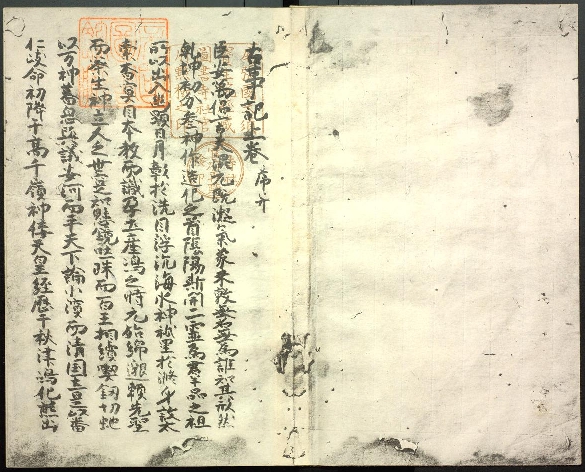 古事記上巻 序并
臣安萬侶言夫混元既凝氣象未效無名無為誰知其形然
乾坤初分參神作造化之首陰陽斯開二靈為群品之祖
所以出入幽顯日月彰於洗目浮沈海水神祇呈於滌身故太
素杳冥因本教而識孕土產嶋之時元始綿邈頼先聖
而察生神立人之世寔知懸鏡吐珠而百王相續喫釼切蛇
以万神蕃息歟議安河而平天下論小濱而清国土是以番
仁岐命初降于高千嶺神倭天皇経歴于秋津嶋化熊出